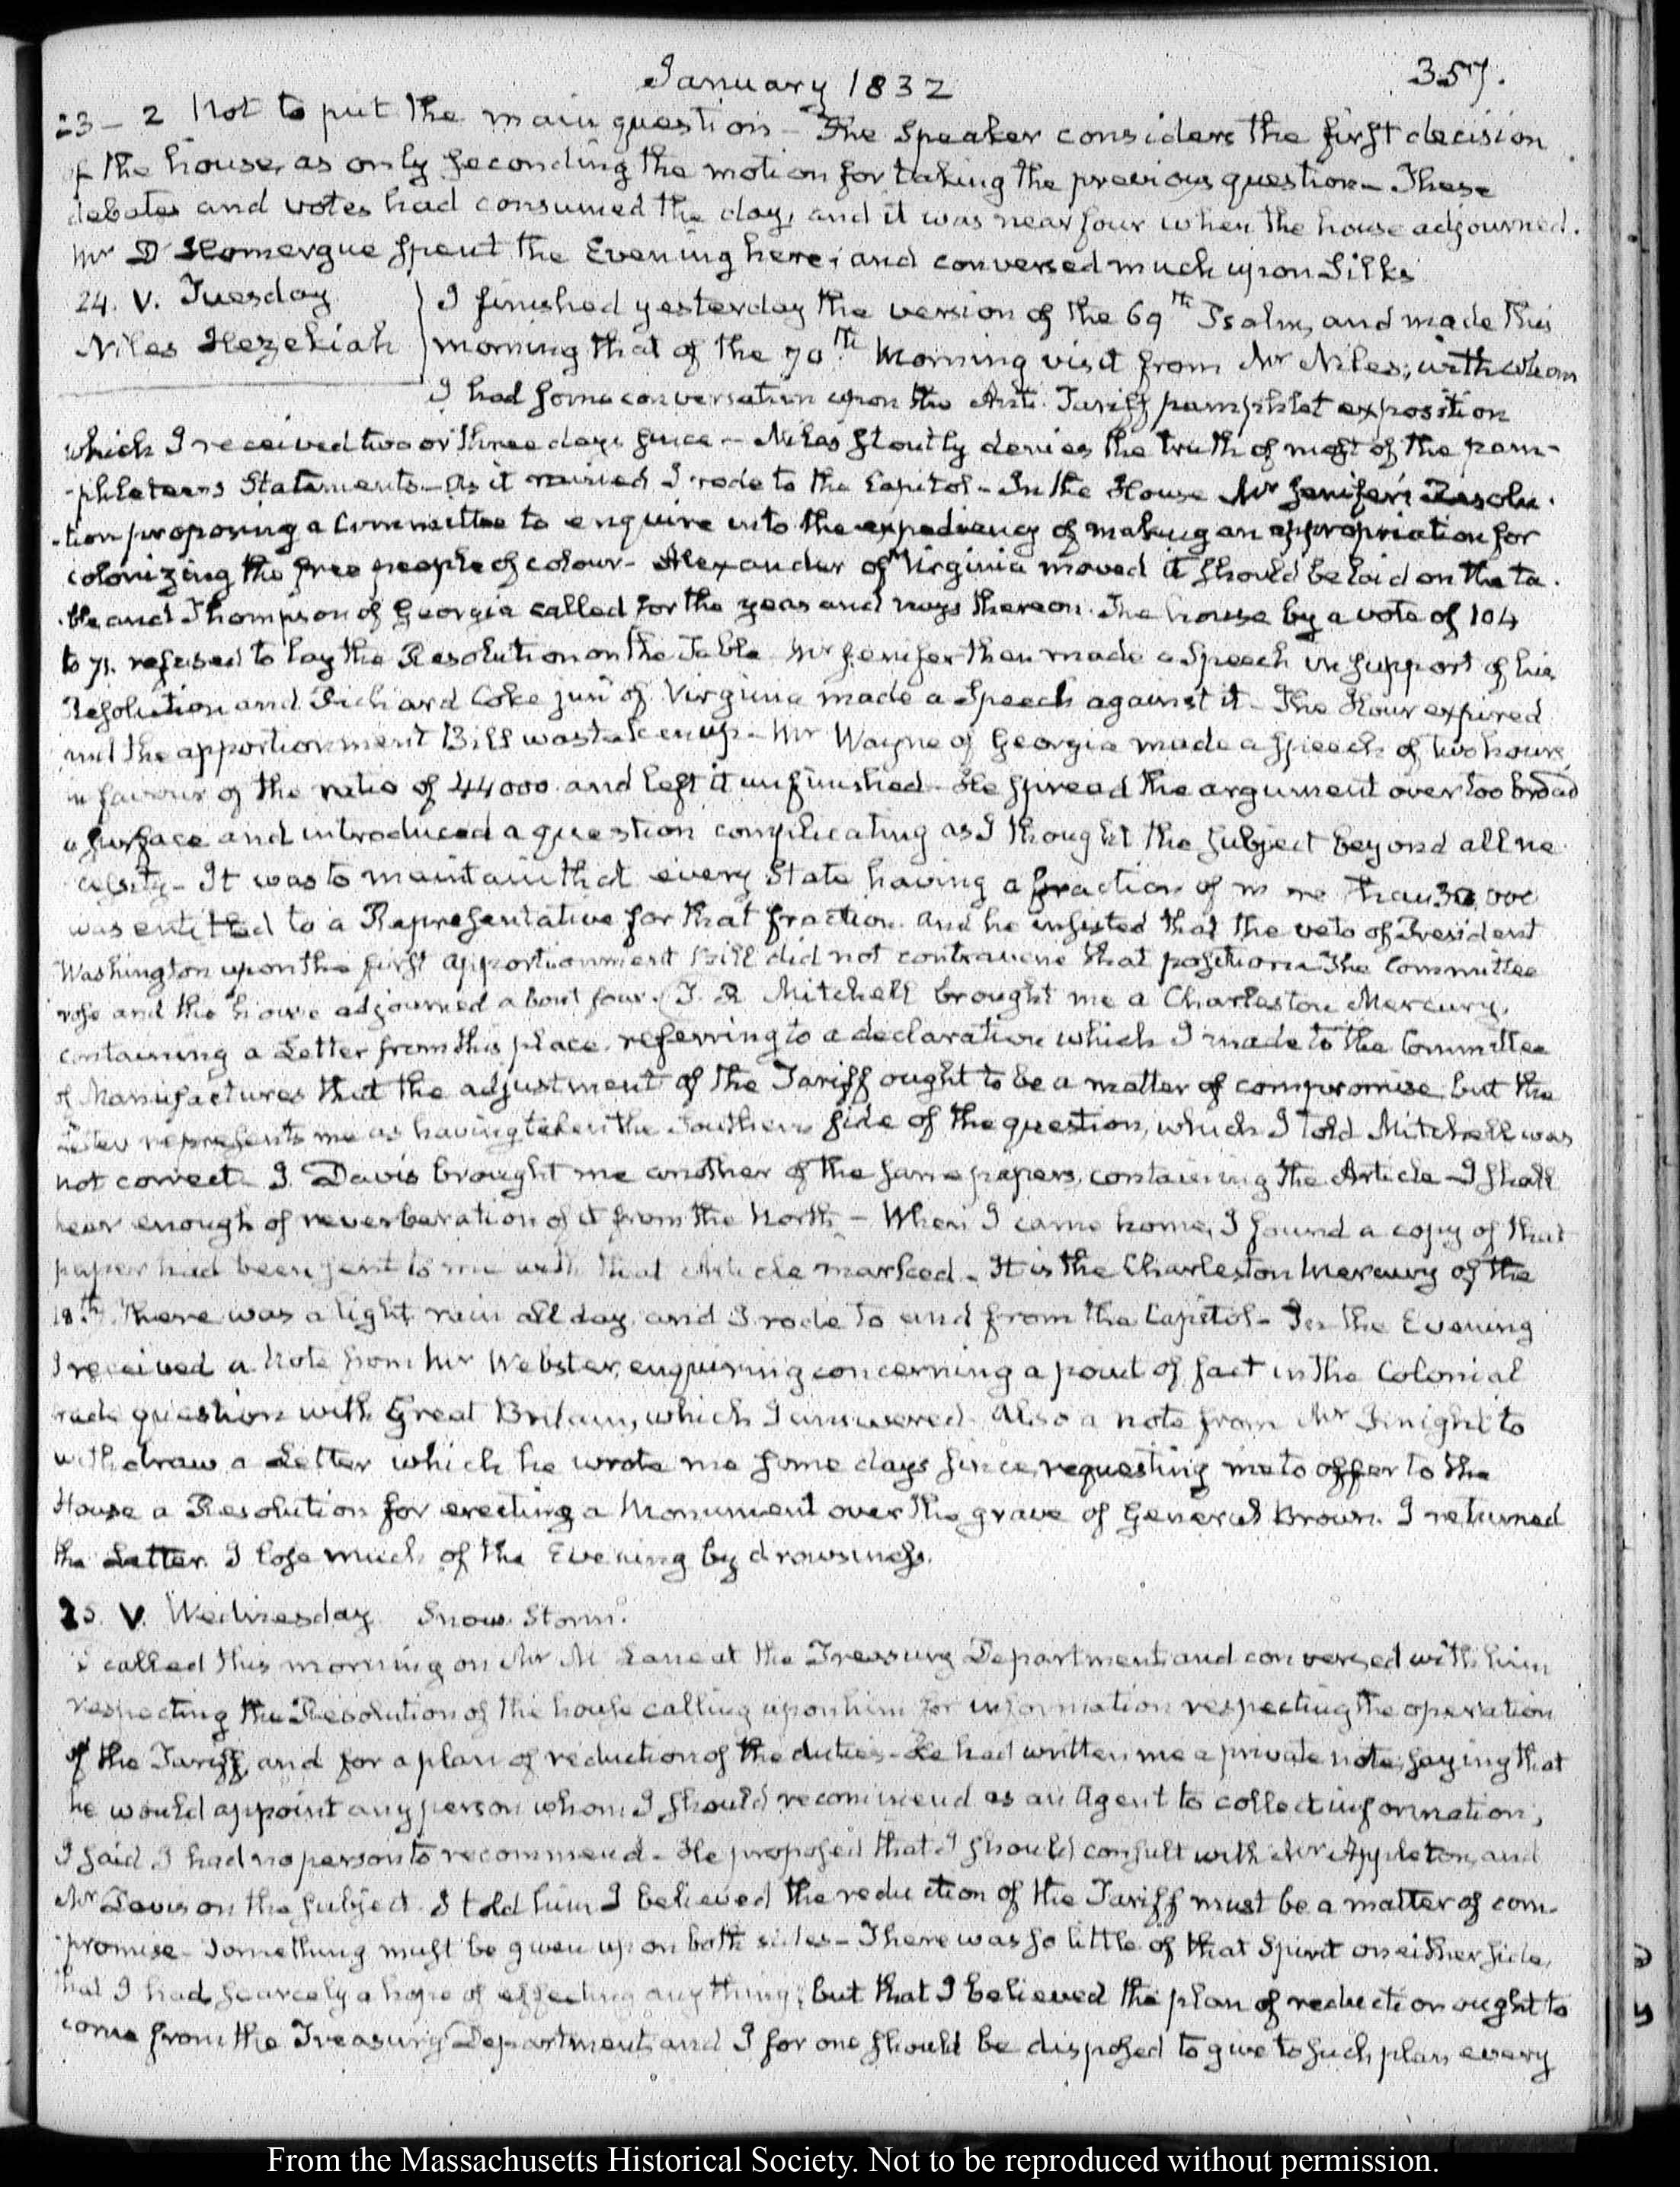 January 1832
357.
23 - 2 not to put the main question - The Speaker considers the first decision
of the house, as only seconding the motion for taking the previous question - These
debates and votes had consumed the day, and it was near four when the house adjourned.
Mr D'Homergue spent the Evening here; and conversed much upon Silks
24. V. Tuesday
Niles Hezekiah
I finished yesterday the version of the 69th Psalm, and made this
morning that of the 70th Morning visit from Mr Niles; with whom
I had some conversation upon the Anti-Tariff pamphlet exposition
which I received two or three days since - Niles stoutly denies the truth of most of the pam-
-phleteers Statements - As it rained I rode to the Capitol - In the House Mr Jenifer's Resolu-
-tion proposing a Committee to enquire into the expediency of making an appropriation for
colonizing the free people of colour - Alexander of Virginia moved it should be laid on the ta-
-ble and Thompson of Georgia called for the yeas and nays thereon. The house by a vote of 104
to 71. refused to lay the Resolution on the Table Mr Jenifer then made a Speech in support of his
Resolution and Richard Coke junr of Virginia made a Speech against it - The Hour expired
and the apportionment Bill was taken up - Mr Wayne of Georgia made a speech of two hours
in favour of the ratio of 44000 and left it unfinished - He spread the argument over too broad
a surface and introduced a question complicating as I thought the subject beyond all ne-
cessity - It was to maintain that every State having a fraction of more than 30,000
was entitled to a Representative for that fraction. and he insisted that the veto of President
Washington upon the first apportionment Bill did not contravene that position - The Committee
rose and the house adjourned about four. T. R Mitchell brought me a Charleston Mercury,
containing a Letter from this place, referring to a declaration which I made to the Committee
of Manufactures that the adjustment of the Tariff ought to be a matter of compromise but the
Letter represents me as having taken the Southern side of the question, which I told Mitchell was
not correct - J. Davis brought me another of the same papers, containing the Article - I shall
hear enough of reverberation of it from the North - When I came home, I found a copy of that
paper had been sent to me with that Article marked - It is the Charleston Mercury of the
18th There was a light rain all day and I rode to and from the Capitol - In the Evening
I received a Note from Mr Webster, enquiring concerning a point of fact in the Colonial
trade question with Great Britain, which I answered. Also a note from Mr to
withdraw a Letter which he wrote me some days since, requesting me to offer to the
House a Resolution for erecting a Monument over the grave of General Brown. I returned
the Letter. I lose much of the Evening by drowsiness.
25. V. Wednesday Snow Storm.
I called this morning on Mr M'Lane at the Treasury Department and conversed with him
respecting the Resolution of the house calling upon him for information respecting the operation
of the Tariff, and for a plan of reduction of the duties - He had written me a private note, saying that
he would appoint any person whom I should recommend as an Agent to collect information,
I said I had no person to recommend - He proposed that I should consult with Mr Appleton, and
Mr Davis on the subject. I told him I believed the reduction of the Tariff must be a matter of com-
-promise - Something must be given up on both sides - There was so little of that Spirit on either side,
that I had scarcely a hope of effecting any thing; but that I believed the plan of reduction ought to
come from the Treasury Department, and I for one should be disposed to give to such plan every
From the Massachusetts Historical Society. Not to be reproduced without permission.